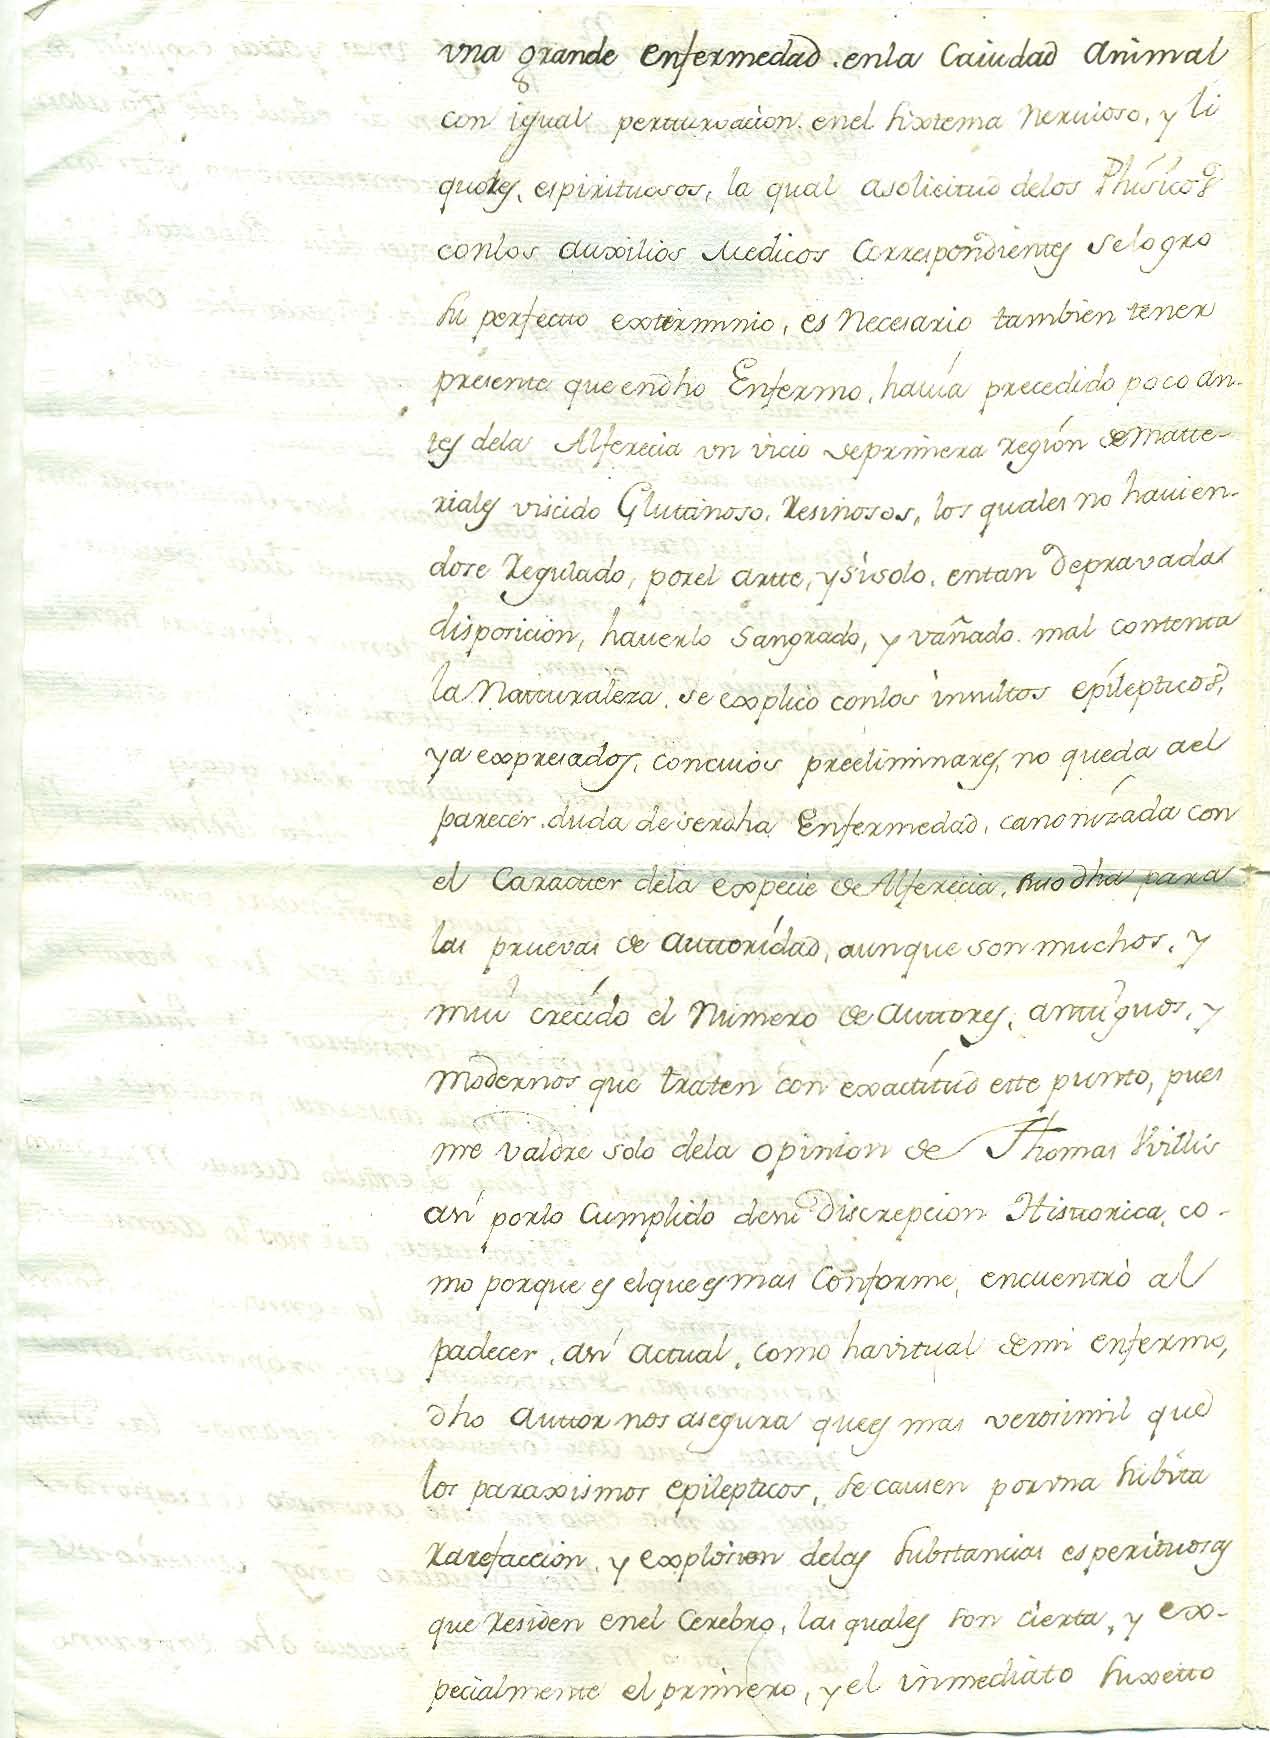 vna grande enfermedad. enla Caiudad animal
con igual pertturvacion. enel sixtema nervioso, y li
quores, espirituosos, la qual asolicitud delos Phisicos
conlos auxilios Medicos Correspondientes selogro
su perfectto exterminio, es necesario tambien tener
presente que endho Enfermo, havia precedido poco an-
tes dela Alferecia vn vicio deprimera región de matte-
riales viscido Glutinoso, Resinosos, los quales no havien-
dose Regulado, porel artte, y si solo, entan depravada
disposicion, haverlo sangrado, y vañado. mal contenta
la Natturaleza. se explico conlos insultos epilepticos,
ya expresados, concuios preeliminares, no queda ael
parecer. duda de serdha Enfermedad, canonizada con
el Caractter dela expecie de Alferecia, dha para
las pruevas de auttoridad, aunque son muchos, y
mui crecido el Numero de auttores, anttiguos, y
modernos que traten con exactitud este punto, pues
me valdre solo dela opinion de Thomas Willis
asi porlo Cumplido desu discrepcion Histtorica, co-
mo porque es elque es mas Conforme, encuentro al
padecer, asi actual, como havitual de mi enfermo,
dho auttor nos asegura que es mas verosimil que
los paraxismos epilepticos, se causen por vna subita
Rarefaccion, y explosion delas substancias esperituosas
que Residen enel Cerebro, las quales son cierta, y ex-
pecialmente el primero, y el inmediato suxetto